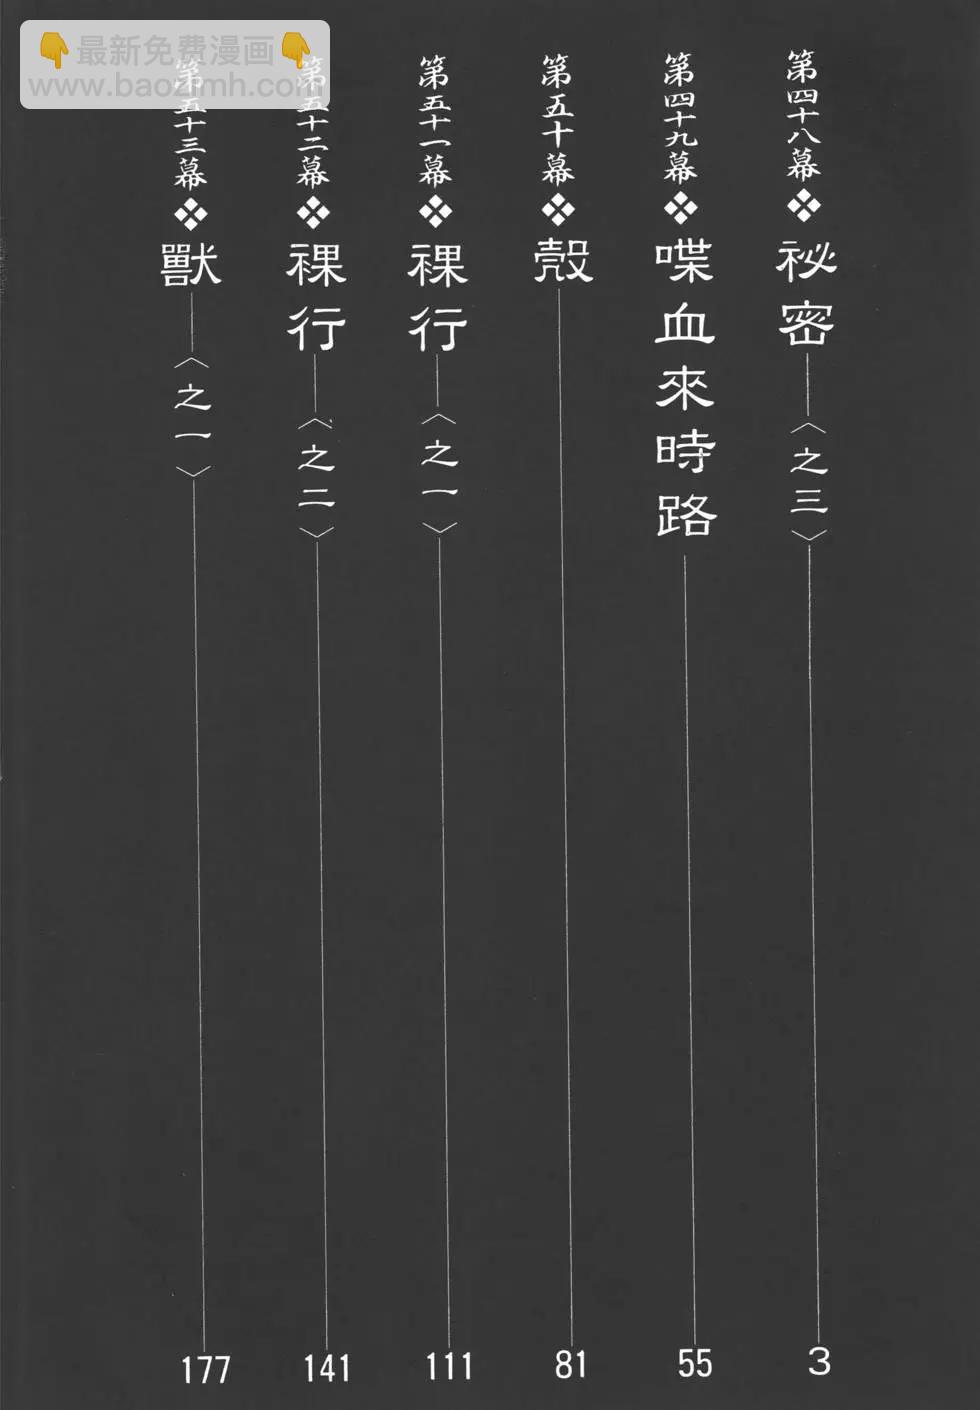 最新免费漫画
www.baozimh.com
第四十八幕❖祕密〈之三〉3
第四十九幕❖喋血來時路55
第五十幕❖殼81
第五十一幕❖裸行〈之一〉111
第五十二幕❖裸行〈之二〉141
第五十三幕❖獸〈之一〉177